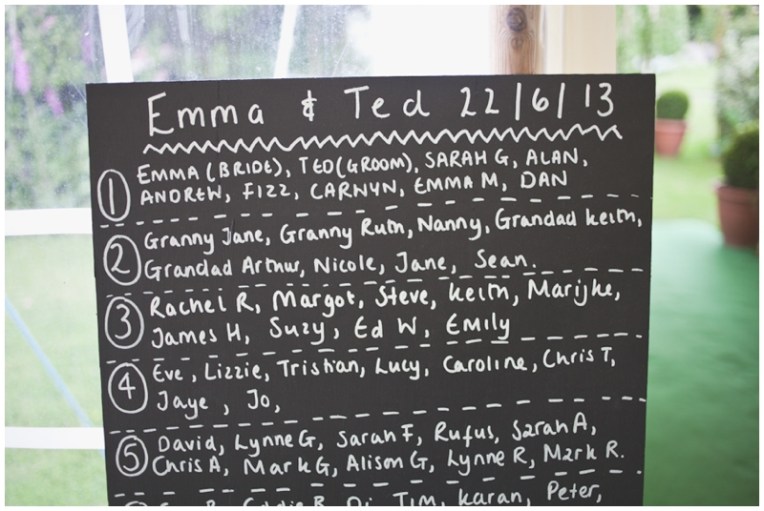 Emma & Ted 22/6/13
1 EMMA (BRIDE), TED (GROOM), SARAH G, ALAN,
ANDREW, FIZZ, CARWYN, EMMA M, DAN
2 Granny Jane, Granny Ruth, Nanny, Grandad Keith,
Grandad Arthur, Nicole, Jane, Sean.
3 Rachel R, Margot, Steve, Keith, Marijke,
James H, Suzy, Ed W, Emily
4 Eve, Lizzie, Tristian, Lucy, Caroline, Chris T,
Jaye, Jo,
5 David, Lynne G, Sarah F, Rufus, Sarah A,
Chris A, Mark G, Alison G, Lynne R, Mark R.
Tim, Karan, Peter,